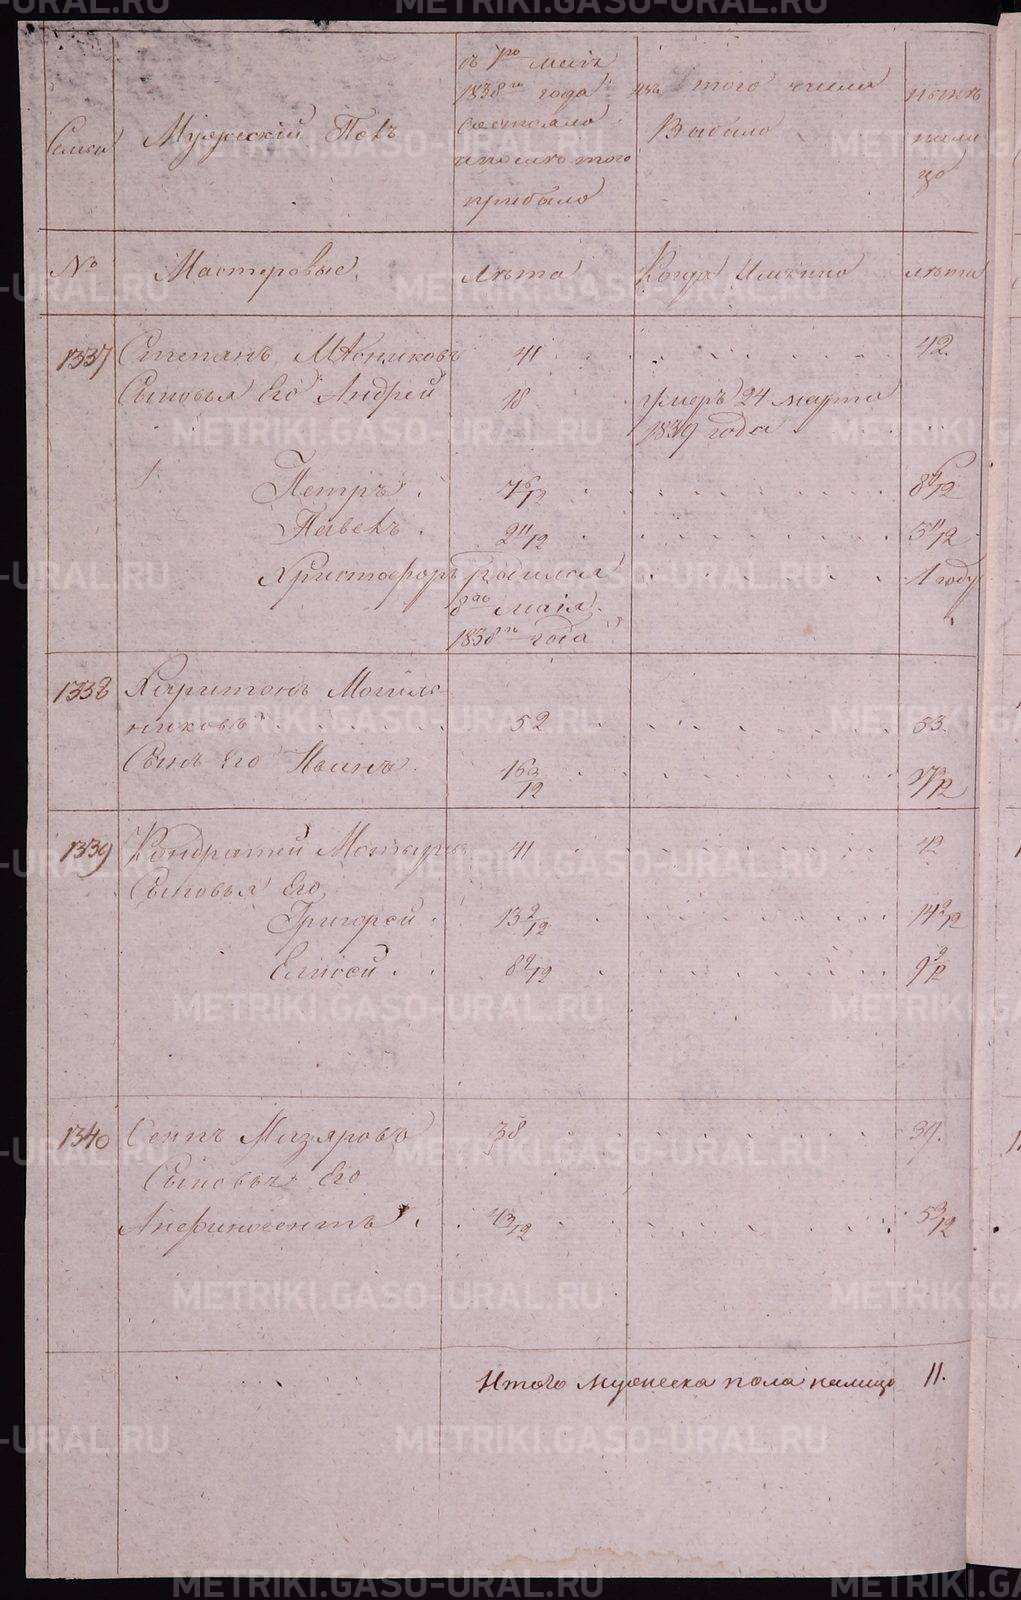 Семьи
Мужескій Полъ
съ 1го маія
1838го года
состояло
и после того
прибыло
изъ того числа
Выбыло
нынѣ
нали
цо
№
Мастеровые.
Лѣта
Когда Имянно
лѣта
1337 Степанъ Мѣсниковъ 41 42.
Сыновья Его Андрей 18 умеръ 24 марта
1839 года
Петръ 7 6/12 8 6/12
Павелъ 2 11/12 3 11/12
Христофоръ родился 1 году
8го маія
1838го года
1338 Харитонъ Могиль
никовъ 52 53.
Сынъ Его Иванъ 16 3/12 17 3/12
1339 Кондратей 41 42
Сыновья Его
Григорей 13 2/12 14 2/12
Елисей 8 9/12 9 9/12
1340 Мазяровъ 38 39.
Сыновья Его
4 3/12 5 3/12
Итого мужеска пола налицо 11.
METRIKI.GASO-URAL.RU